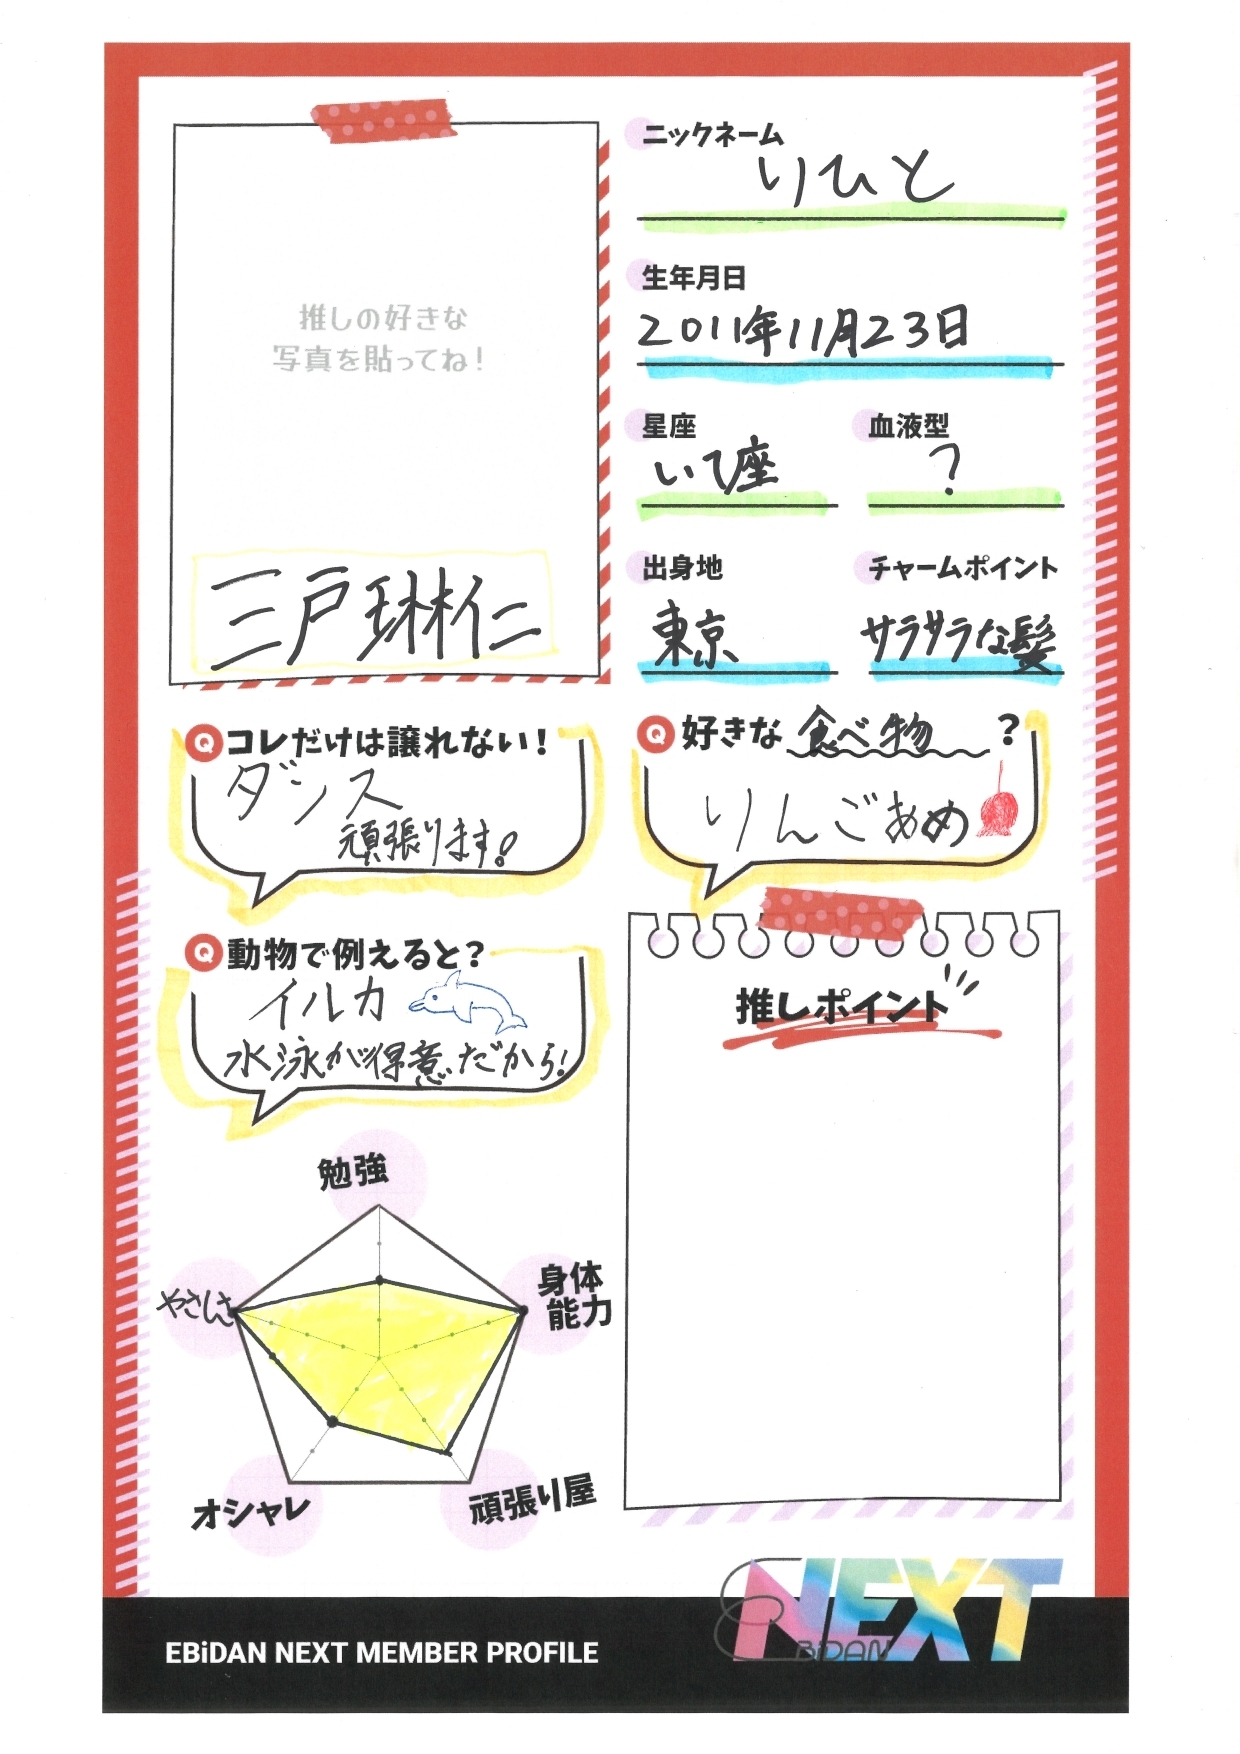 推しの好きな
写真を貼ってね！
三戸琳仁
ニックネーム
りひと
生年月日
2011年11月23日
星座
いて座
血液型
?
出身地
東京
チャームポイント
サラサラな髪
Q コレだけは譲れない！
ダンス
頑張ります!
Q 好きな 食べ物 ？
りんごあめ
Q 動物で例えると？
イルカ
水泳が得意だから!
推しポイント
勉強
身体
能力
頑張り屋
オシャレ
やさしさ
EBiDAN NEXT MEMBER PROFILE
NEXT
EBiDAN